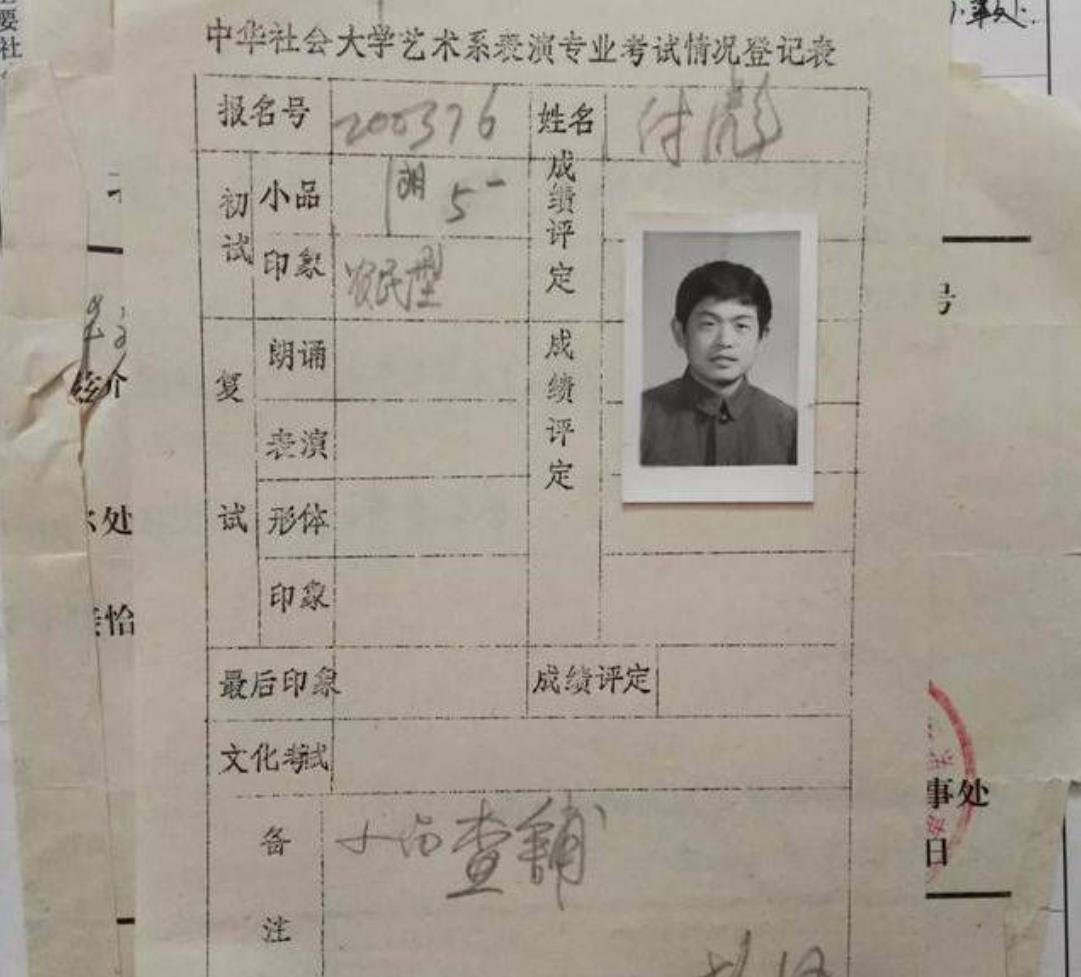 中华社会大学艺术系表演专业考试情况登记表
报名号 200376 姓名 付彪
初试 小品 朗 5- 成绩评定
印象 农民型
复试 朗诵 成绩评定
表演
形体
印象
最后印象 成绩评定
文化考试
备注 小品查铺
要
社
号
介
处
恰
事处
日